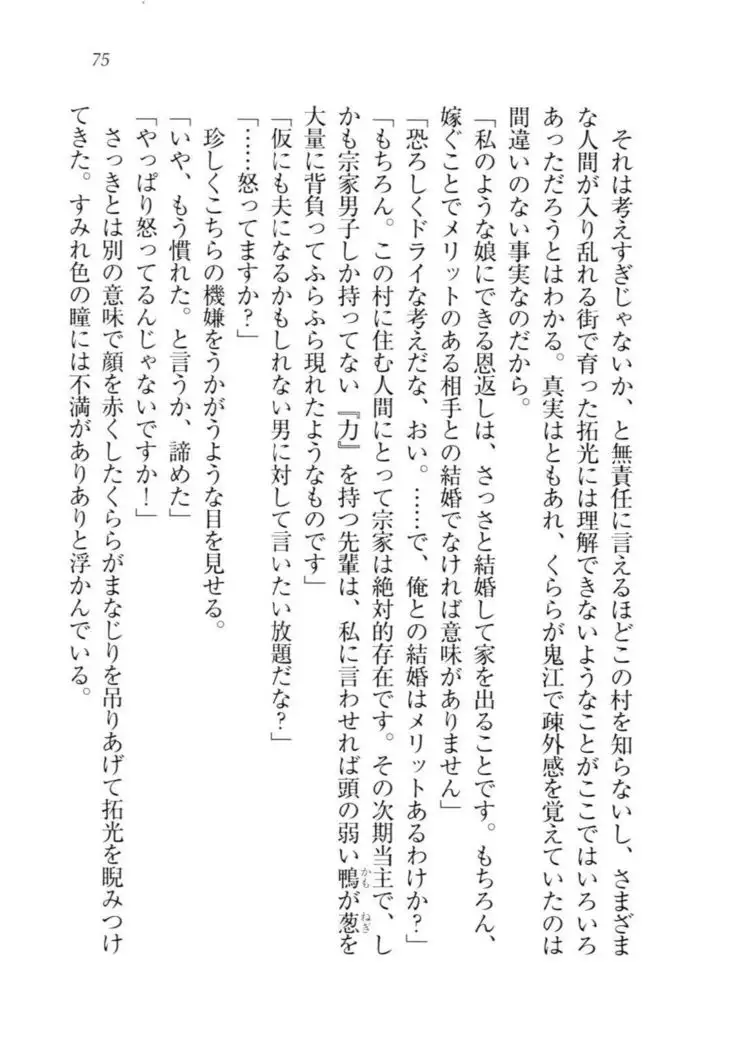 75
それは考えすぎじゃないか、と無責任に言えるほどこの村を知らないし、さまざま
な人間が入り乱れる街で育った拓光には理解できないようなことがここではいろいろ
あっただろうとはわかる。真実はともあれ、くららが鬼江で疎外感を覚えていたのは
間違いのない事実なのだから。
「私のような娘にできる恩返しは、さっさと結婚して家を出ることです。もちろん、
嫁ぐことでメリットのある相手との結婚でなければ意味がありません」
「恐ろしくドライな考えだな、おい。……で、俺との結婚はメリットあるわけか?」
「もちろん。この村に住む人間にとって宗家は絶対的存在です。その次期当主で、し
かも宗家男子しか持ってない『力』を持つ先輩は、私に言わせれば頭の弱い鴨が葱を
かも
ねぎ
大量に背負ってふらふら現れたようなものです」
「仮にも夫になるかもしれない男に対して言いたい放題だな?」
「……怒ってますか?」
珍しくこちらの機嫌をうかがうような目を見せる。
「いや、もう慣れた。と言うか、諦めた」
「やっぱり怒ってるんじゃないですか!」
さっきとは別の意味で顔を赤くしたくららがまなじりを吊りあげて拓光を睨みつけ
てきた。すみれ色の瞳には不満がありありと浮かんでいる。